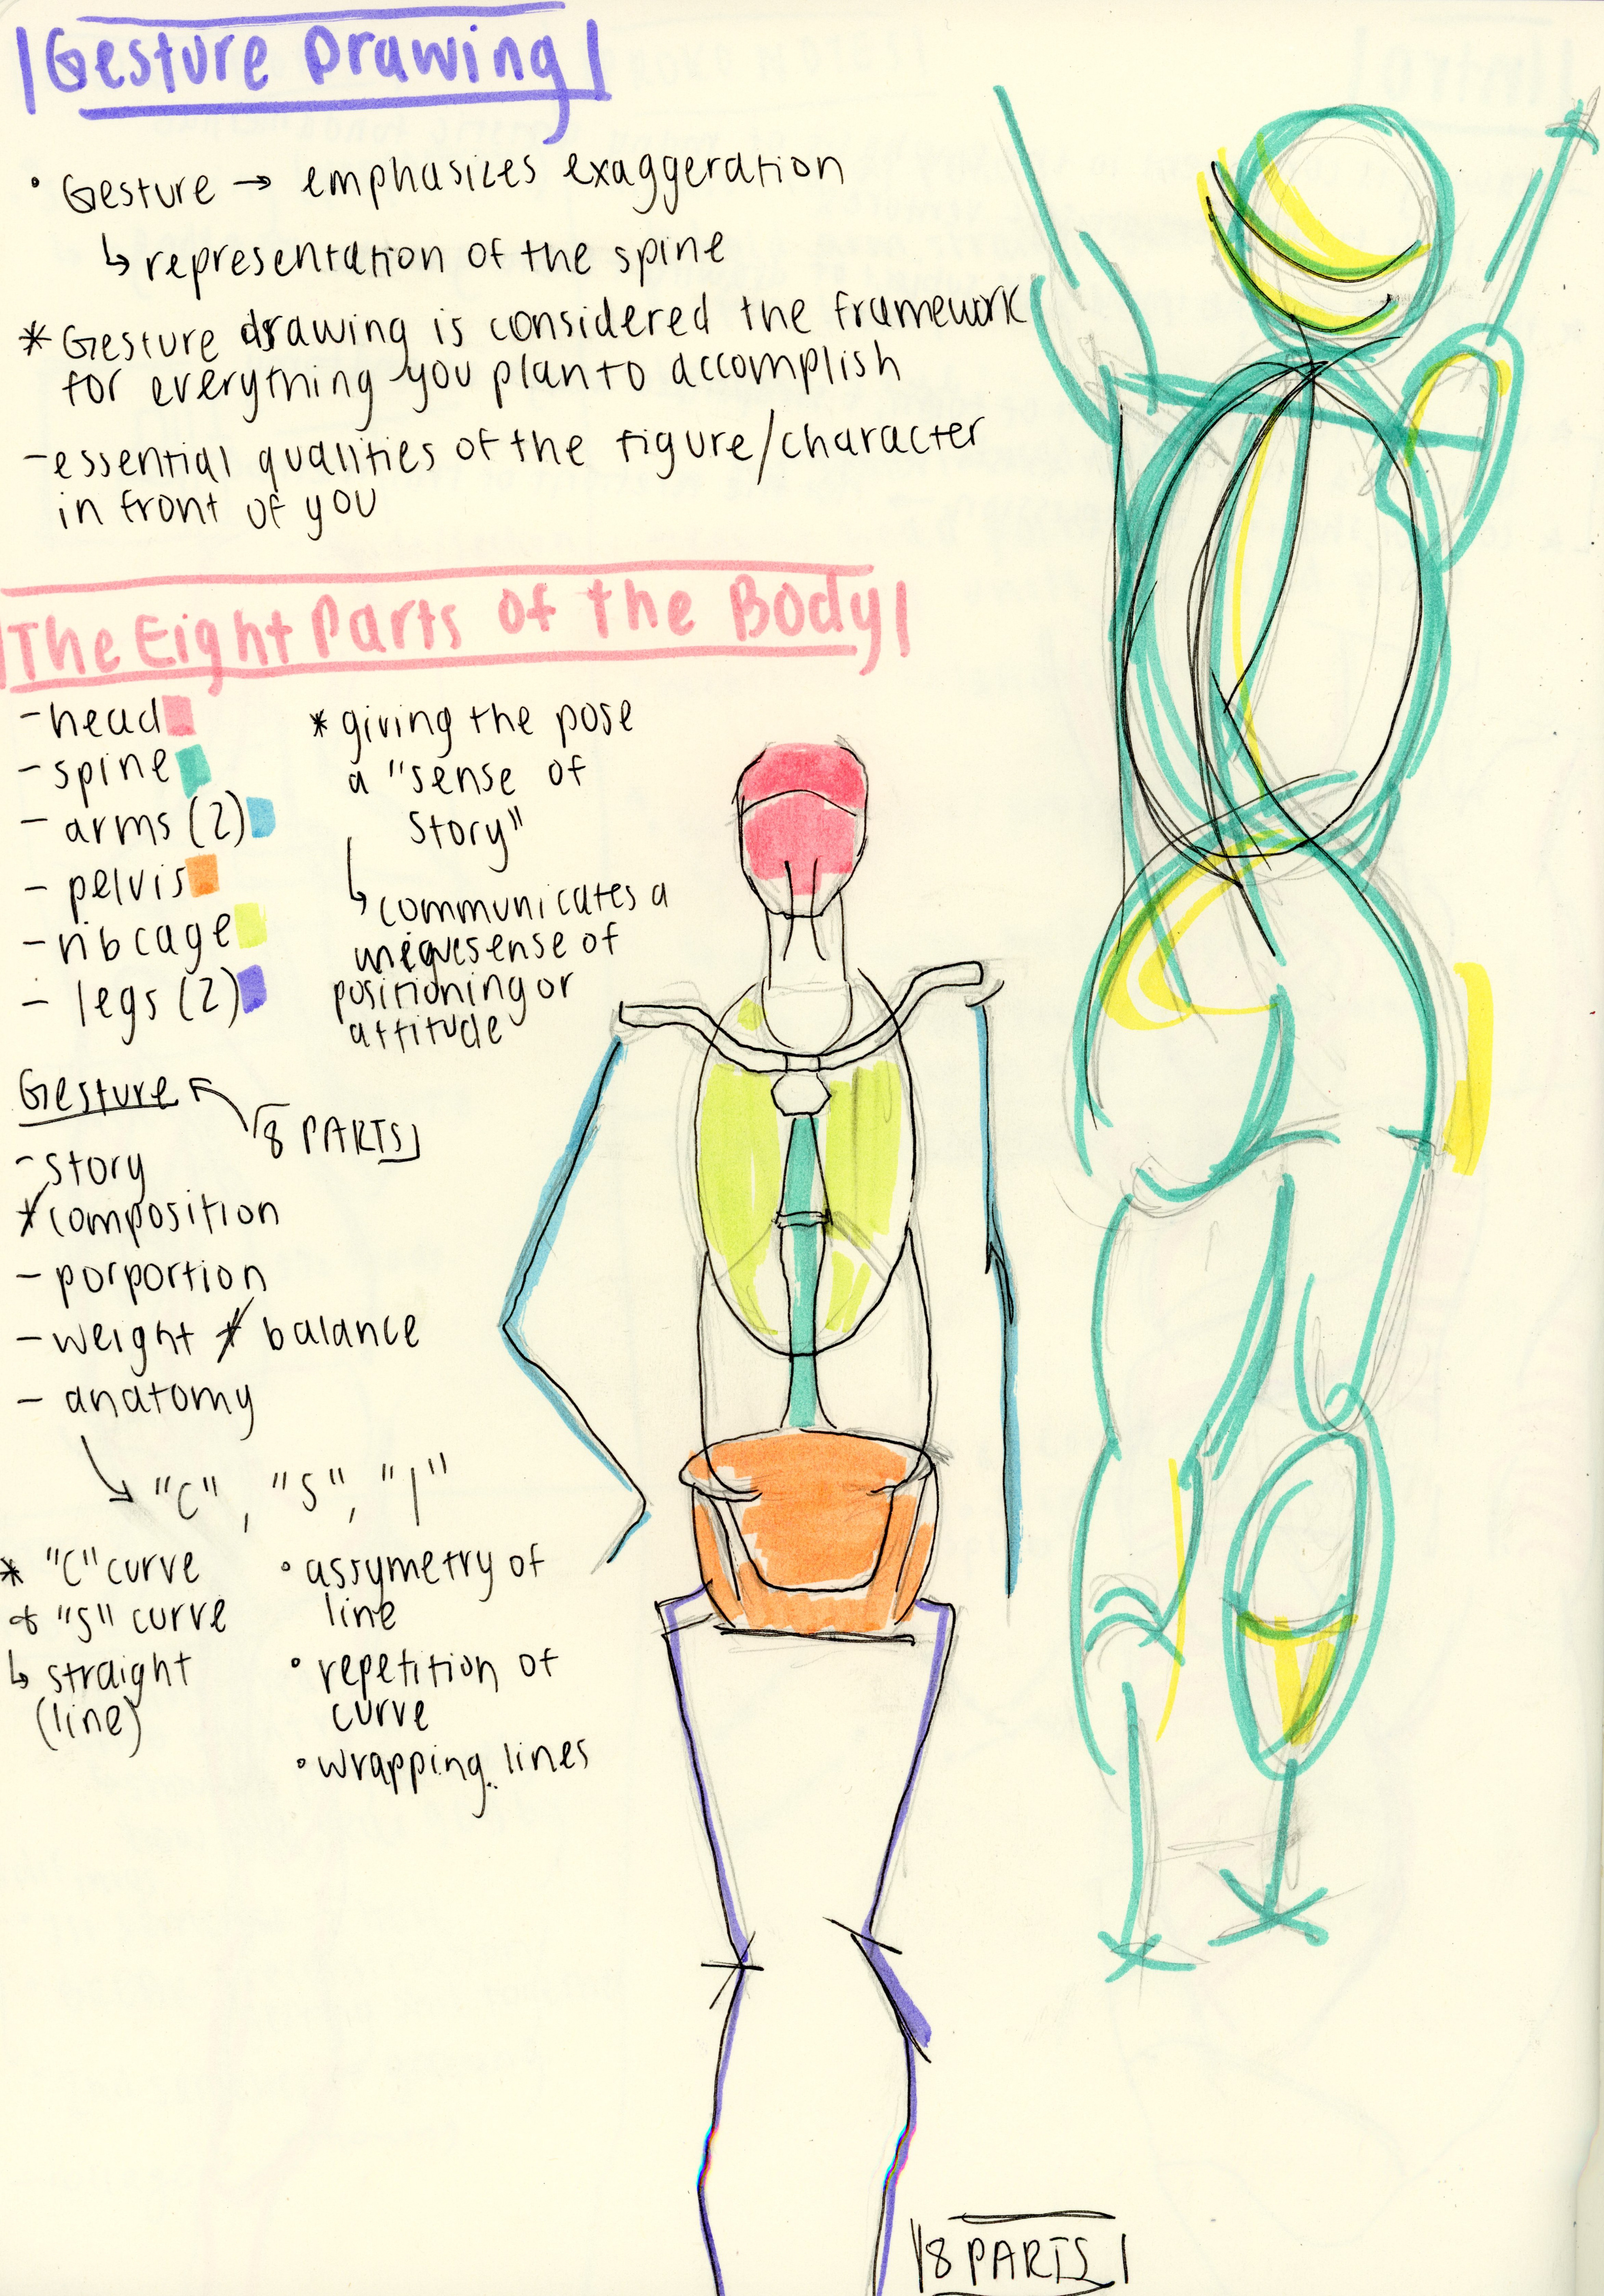 Gesture Drawing
• Gesture → emphasizes exaggeration
↳ representation of the spine
* Gesture drawing is considered the framework
for everything you plan to accomplish
- essential qualities of the figure/character
in front of you
The Eight Parts of the Body
- head
- spine
- arms (2)
- pelvis
- ribcage
- legs (2)
* giving the pose
a "sense of
story"
↳ communicates a
unique sense of
positioning or
attitude
Gesture
8 PARTS
- story
* composition
- porportion
- weight + balance
- anatomy
↳ "C", "S", "I"
* "C" curve
& "S" curve
↳ straight
(line)
• assymetry of
line
• repetition of
curve
• wrapping lines
8 PARTS